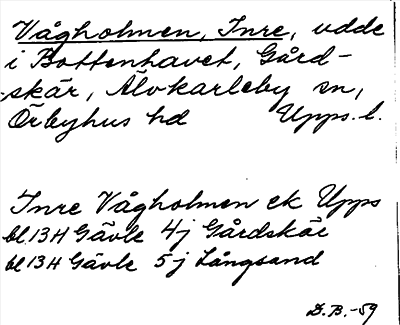 Vågholmen, Inre, udde
i Bottenhavet, Gård-
skär, Älvkarleby sn,
Örbyhus hd Upps. l.
Inre Vågholmen ek Upps
bl. 13H Gävle 4j Gårdskär
bl 13H Gävle 5j Långsand
D.B.-59